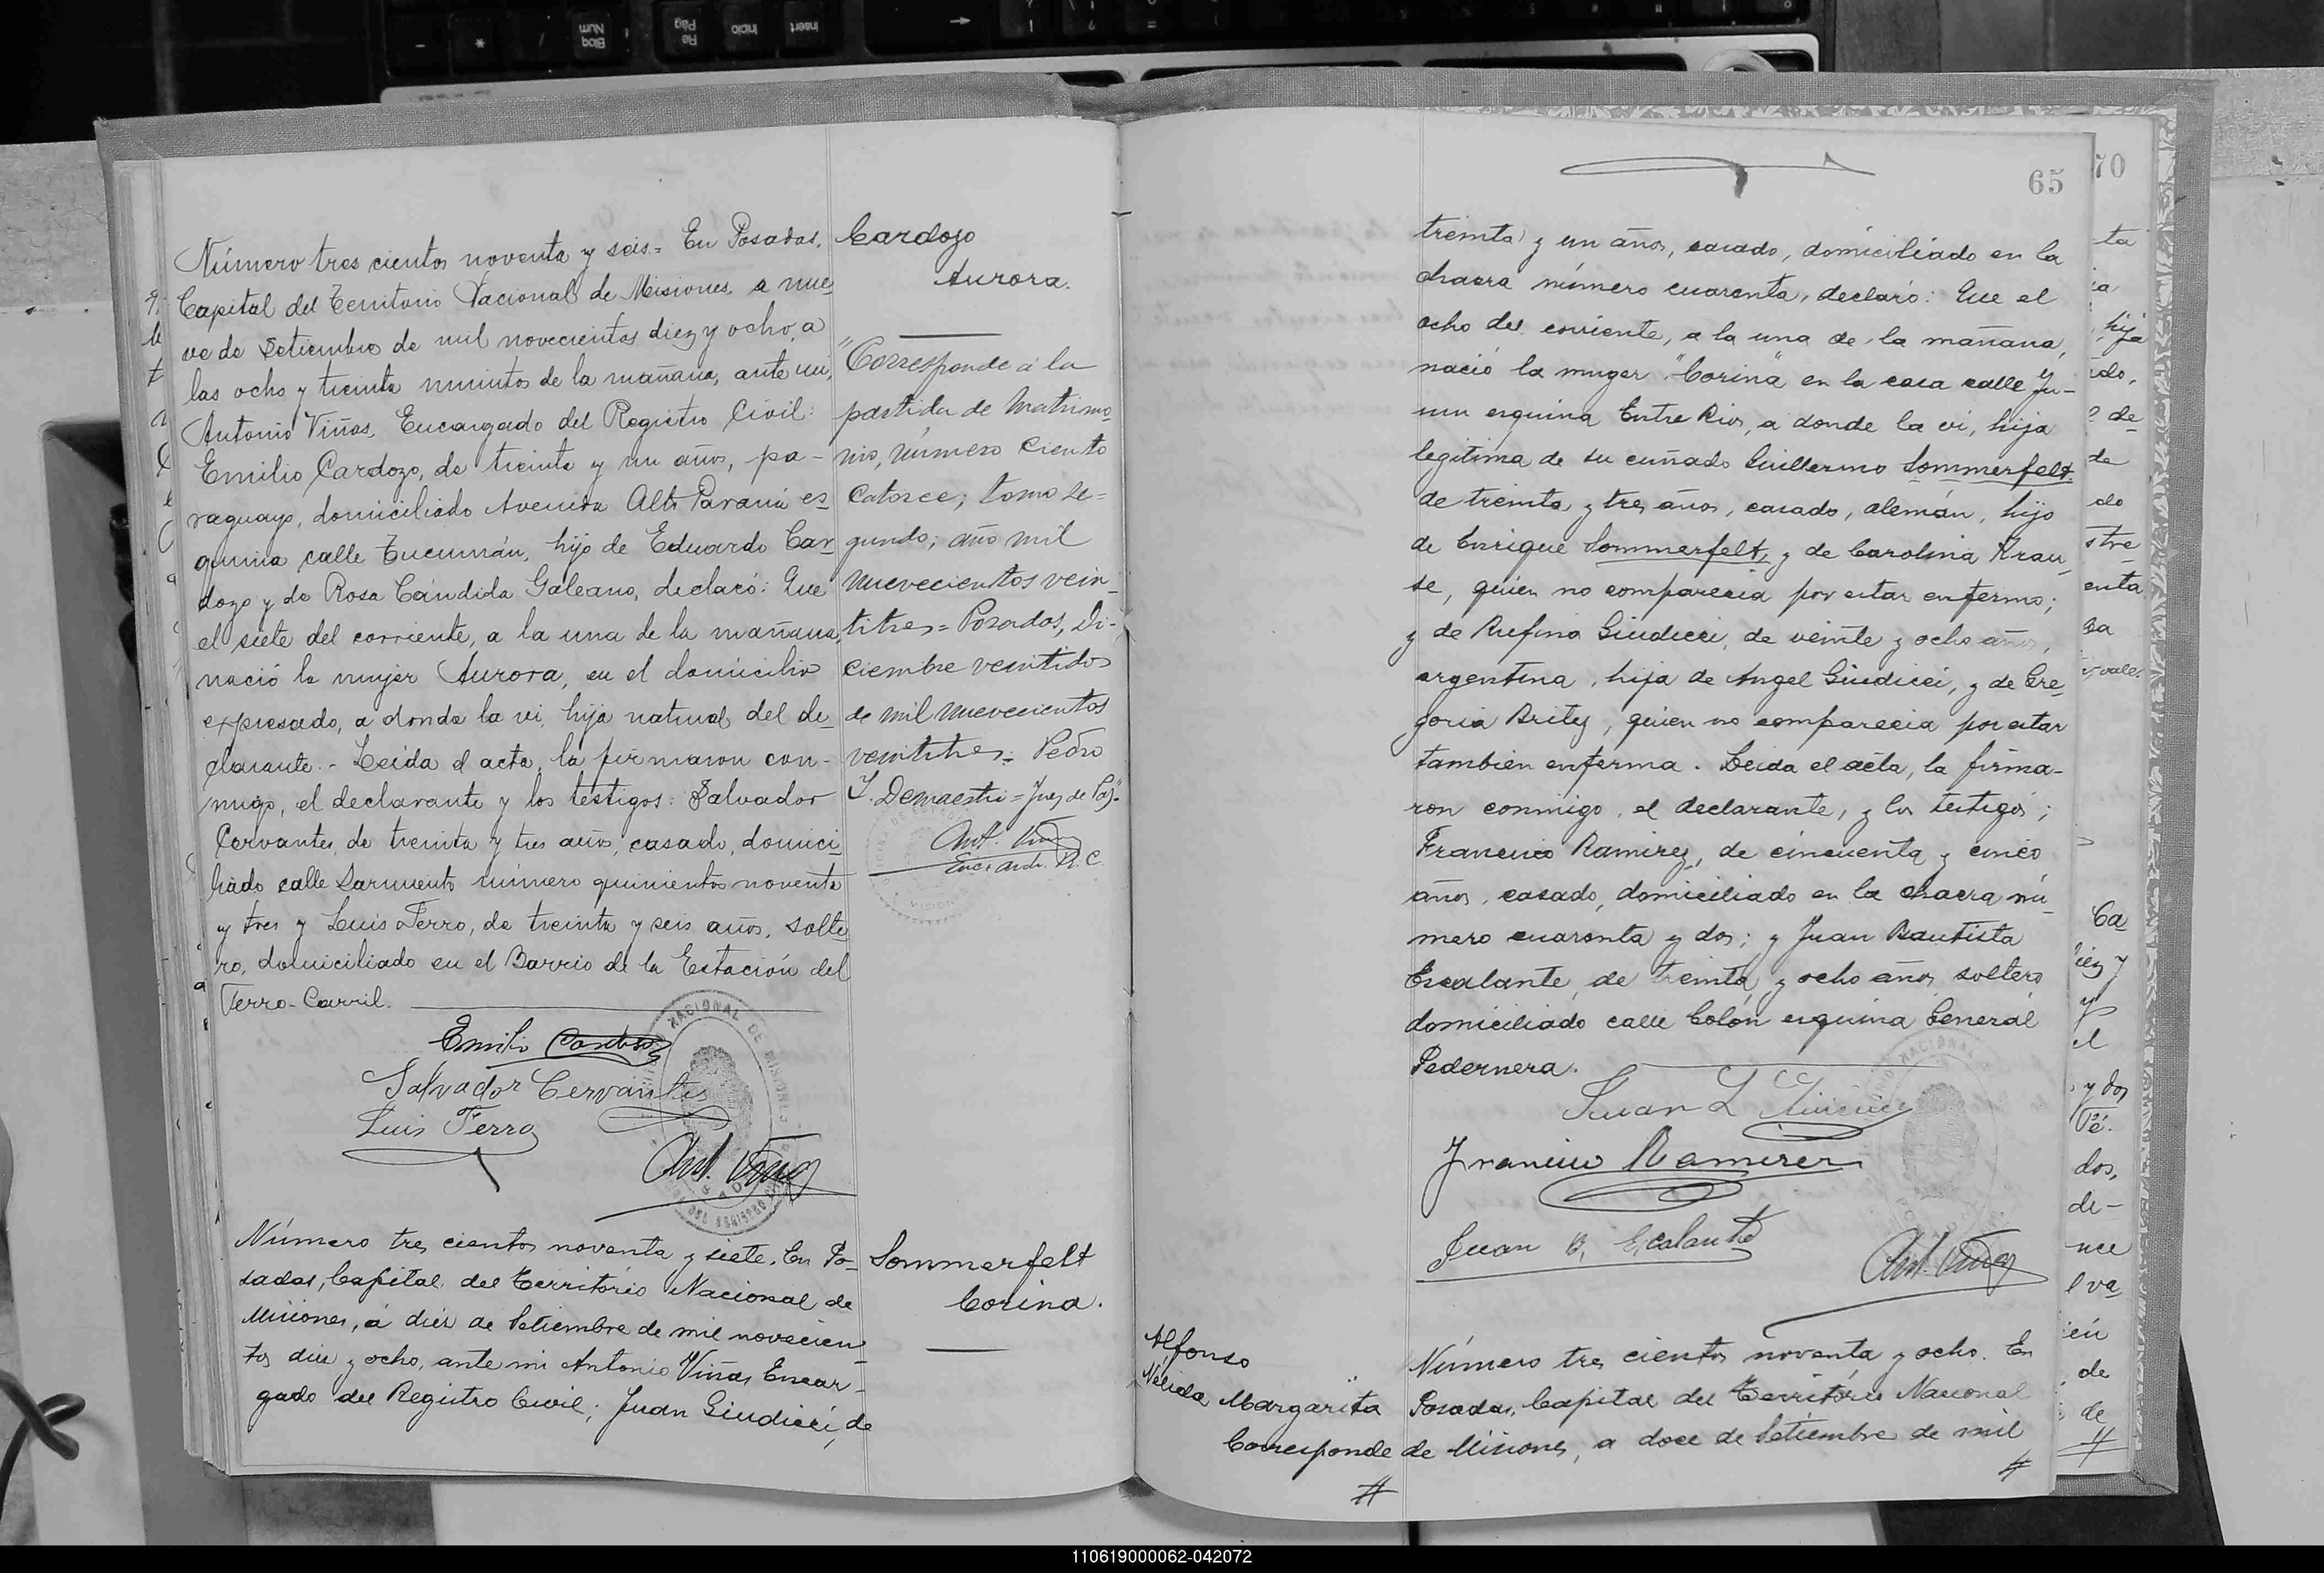 Número tres cientos noventa y seis = En Posadas,
Capital del Territorio Nacional de Misiones a nue-
ve de Setiembre de mil novecientos diez y ocho, a
las ocho y treinta minutos de la mañana, ante mí,
Antonio Viñas, Encargado del Registro Civil:
Emilio Cardozo, de treinta y un años, pa-
raguayo, domiciliado Avenida Alto Paraná es-
quina calle Tucumán, hijo de Eduardo Car-
dozo y de Rosa Cándida Galeano, declaró: Que
el siete del corriente, a la una de la mañana,
nació la mujer Aurora, en el domicilio
expresado, a donde la vi, hija natural del de-
clarante.- Leída el acta, la firmaron con-
migo, el declarante y los testigos: Salvador
Cervantes, de treinta y tres años, casado, domici-
liado calle Sarmiento número quinientos noventa
y tres y Luis Ferro, de treinta y seis años, solte-
ro, domiciliado en el Barrio de la Estación del
Ferro-Carril.
Emilio Cardozo
Salvador Cervantes
Luis Ferro
Ant. Viñas
Cardozo
Aurora.
"Corresponde a la
partida de matrimo-
nio, número ciento
catorce; tomo se-
gundo; año mil
nuevecientos vein-
titres = Posadas, Di-
ciembre veintidos
de mil nuevecientos
veintitres = Pedro
I. Demaestri = Juez de Paz"
Ant. Viñas
R. C.
Número tres cientos noventa y siete. En Po-
sadas, Capital del Territorio Nacional de
Misiones, á diez de Setiembre de mil novecien-
tos diez y ocho, ante mi Antonio Viñas Encar-
gado del Registro Civil; Juan Giudicci, de
Sommerfelt
Corina.
65
treinta y un años, casado, domiciliado en la
chacra número cuarenta, declaró: Que el
ocho del corriente, a la una de la mañana,
nació la muger "Corina" en la casa calle Ju-
nin esquina Entre Rios, a donde la vi, hija
legitima de su cuñado Guillermo Sommerfelt
de treinta y tres años, casado, alemán, hijo
de Enrique Sommerfelt, y de Carolina Krau-
se, quien no comparecia por estar enfermo;
y de Rufina Giudicci, de veinte y ocho años,
argentina, hija de Angel Giudicci, y de Gre-
goria Brites, quien no comparecia por estar
tambien enferma. Leida el acta, la firma-
ron conmigo, el declarante, y los testigos;
Francisco Ramirez, de cincuenta y cinco
años, casado, domiciliado en la chacra nú-
mero cuarenta y dos; y Juan Bautista
Escalante, de treinta y ocho años soltero
domiciliado calle Colón esquina General
Pedernera.
Juan L
Francisco Ramirez
Juan B. Escalante
Ant. Viñas
Alfonso
Nélida Margarita
Corresponde
#
Número tres cientos noventa y ocho. En
Posadas, Capital del Territorio Nacional
de Misiones, a doce de Setiembre de mil
#
70
ta
hija
ido,
de
de
do
stre
enta
vale.
Ca
iez y
el
y dos
dos,
de-
nce
de
de
#
110619000062-042072